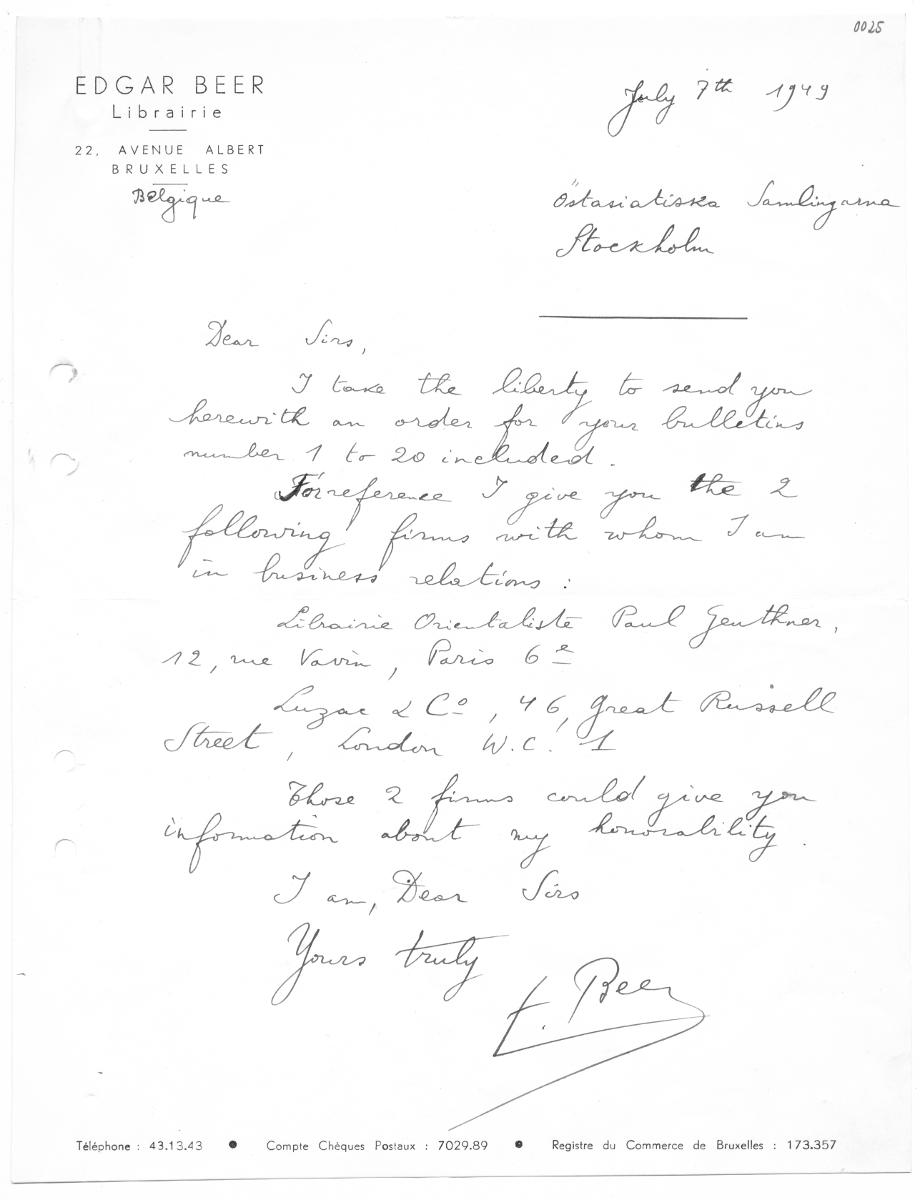 0025
EDGAR BEER
Librairie
22, AVENUE ALBERT
BRUXELLES
Belgique
July 7th 1949
Östasiatiska Samlingarna
Stockholm
Dear Sirs,
I take the liberty to send you
herewith an order for your bulletins
number 1 to 20 included.
For reference I give you the 2
following firms with whom I am
in business relations :
Librairie Orientaliste Paul Geuthner,
12, rue Vavin, Paris 6e
Luzac & Co, 46, Great Russell
Street, London W.C. 1
Those 2 firms could give you
information about my honorability.
I am, Dear Sirs
Yours truly
E. Beer
Téléphone : 43.13.43 ● Compte Chèques Postaux : 7029.89 ● Registre du Commerce de Bruxelles : 173.357